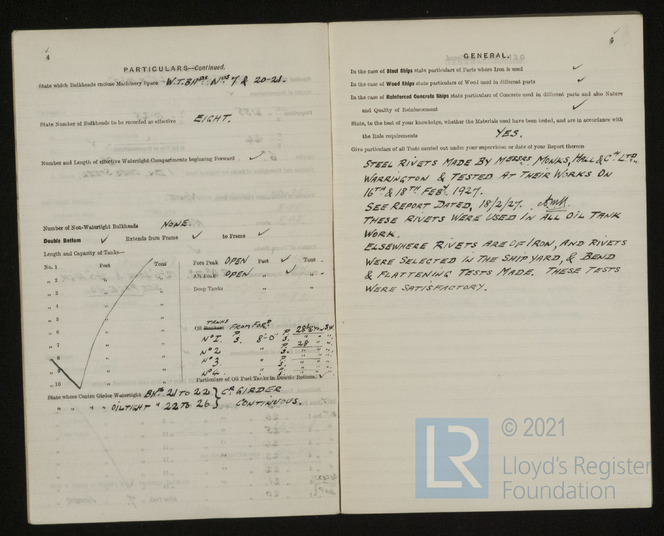 4
PARTICULARS—Continued.
State which Bulkheads enclose Machinery Space W.T. BHDS Nos 7 & 20-21.
State Number of Bulkheads to be recorded as effective EIGHT.
Number and Length of effective Watertight Compartments beginning Forward
Number of Non-Watertight Bulkheads NONE.
Double Bottom Extends from Frame to Frame
Length and Capacity of Tanks—
No. 1 Feet Tons Fore Peak OPEN Feet Tons
„ 2 Aft Peak OPEN
„ 3 Deep Tanks
„ 4
„ 5
„ 6 Oil TANKS FROM FORD
„ 7 No 1. P. S. 8'-0" P. S.
„ 8 No 2 „ P. S. 28
„ 9 No 3 „ P. S.
„ 10 No 4. „
Particulars of Oil Fuel Tanks in Double Bottom
State where Centre Girder Watertight BHDS 21 TO 22 } CR GIRDER
„ „ „ OILTIGHT „ 22 TO 26 } CONTINUOUS.
5
GENERAL.
In the case of Steel Ships state particulars of Parts where Iron is used
In the case of Wood Ships state particulars of Wood used in different parts
In the case of Reinforced Concrete Ships state particulars of Concrete used in different parts and also Nature
and Quality of Reinforcement
State, to the best of your knowledge, whether the Materials used have been tested, and are in accordance with
the Rule requirements YES.
Give particulars of all Tests carried out under your supervision or date of your Report thereon
STEEL RIVETS MADE BY MESSRS MONKS, HALL & Co LTD.
WARRINGTON & TESTED AT THEIR WORKS ON
16TH & 18TH FEBY. 1927.
SEE REPORT DATED, 18/2/27.
THESE RIVETS WERE USED IN ALL OIL TANK
WORK.
ELSEWHERE RIVETS ARE OF IRON, AND RIVETS
WERE SELECTED IN THE SHIP YARD, & BEND
& FLATTENING TESTS MADE. THESE TESTS
WERE SATISFACTORY.
LR © 2021
Lloyd's Register
Foundation